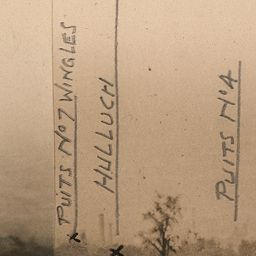 PUITS No 7 WINGLES
HULLUCH
PUITS No 4